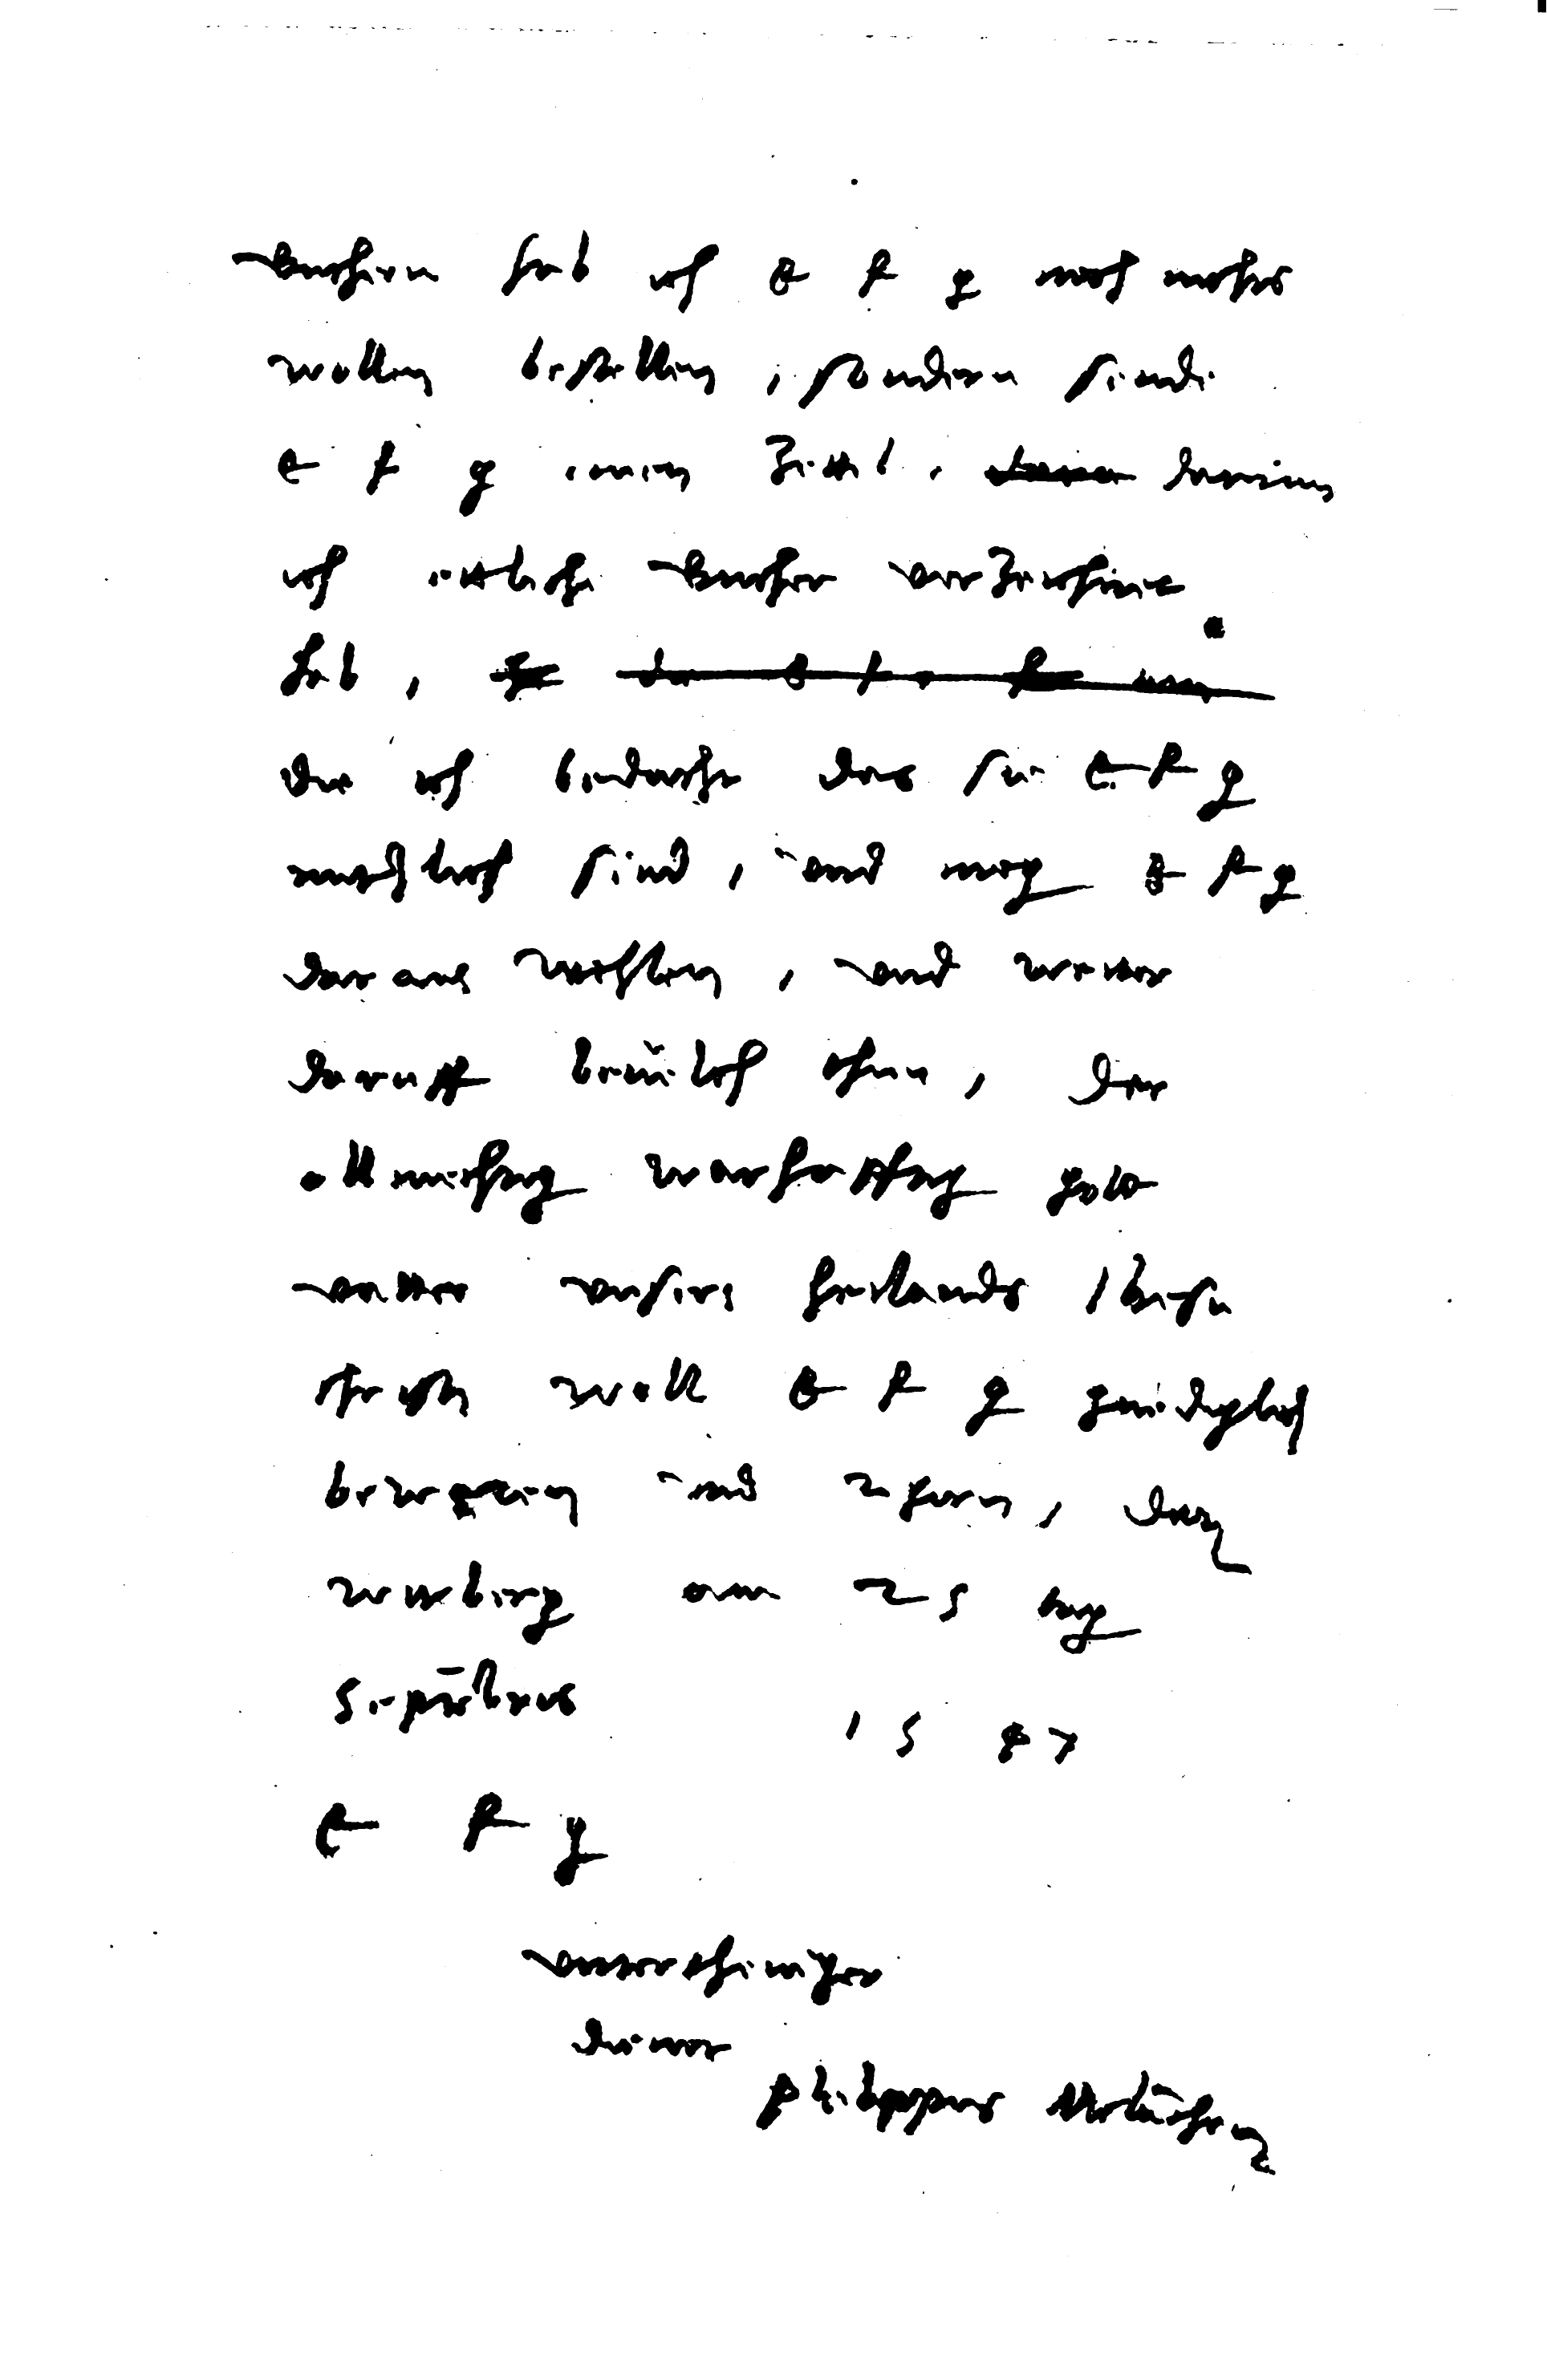 Bucher hab ich E f g nach mehr
wollen bestellen, sondern sende
E f g einen Zettel, darinn
ich ettliche Bucher verzeichnet
hab,
die ich bedacht das sie E f g
nutzlich sind, und mag E f g
daraus welhen, und weiter
daruff bevelch thun, der
allmechtig warhafftig gott
vatter unsers heilands Jhesu
christi woll E f g gnediglich
bewaren und regirn, dat
witeberg am 25 tag
Septembris 1547
E f g
undertheniger
diener
Philippus Melanchthon